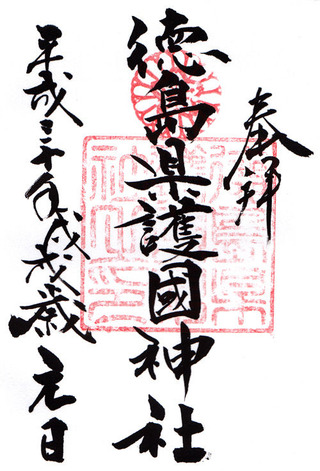 奉拝
徳島県護國神社
平成三十年戊戌歳元日